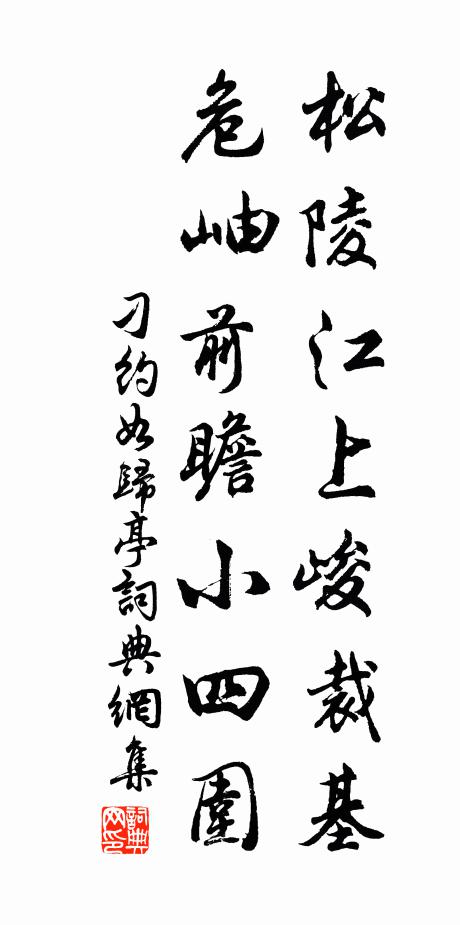 松陵江上峻裁基
危岫前瞻小四圍
刁約如歸亭詞典網集
詞典網印